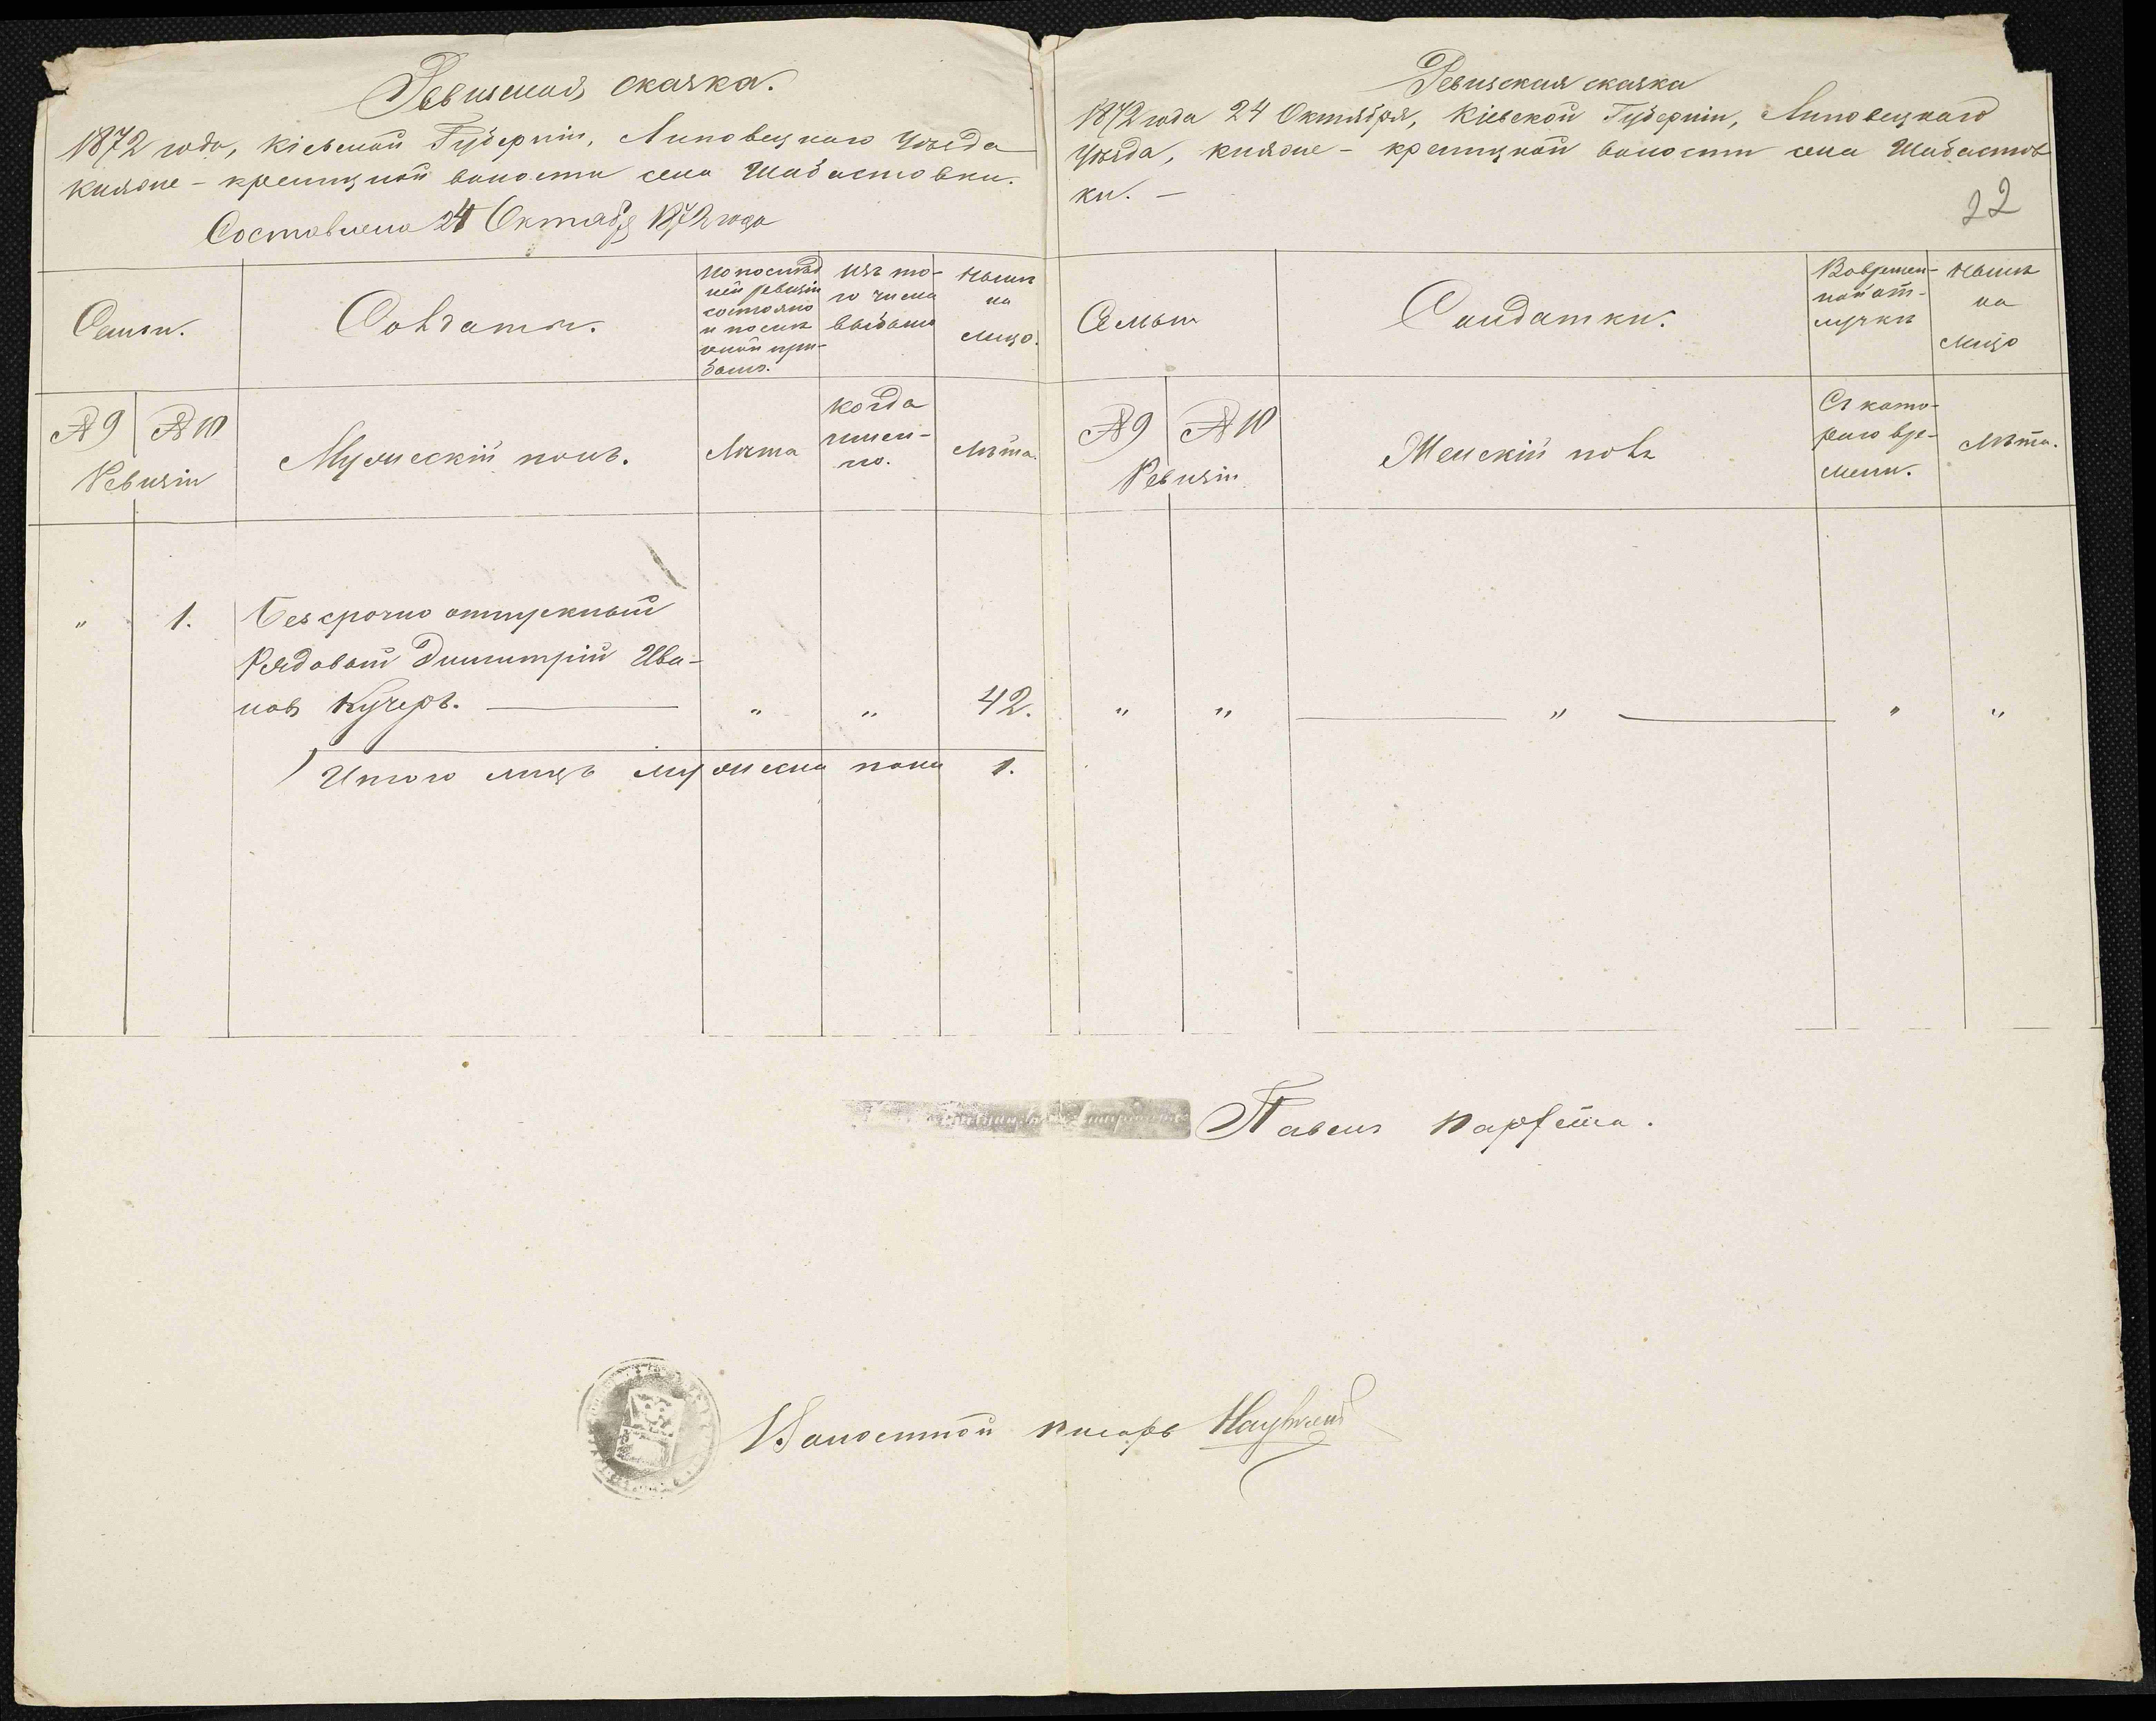 Ревизская сказка.
1872 года, Кіевской Губерніи, Липовецкаго Уѣзда
Княже-крепицкой волости села Шабастовки.
Составлена 24 Октября 1872 года
Семьи.
Солдаты.
По послѣд
ней ревизіи
состояло
и послѣ
оной при-
было.
Изъ то-
го числа
выбыло
Нынѣ
на
лицо.
№ 9 № 10
Ревизіи
Мужескій полъ.
Лѣта
когда
имен-
но.
Лѣта.
" 1. Безсрочно отпускный
Рядовой Димитрій Ива-
новъ Кучеръ. " " 42.
Итого лицъ мужеска пола 1.
Ревизская сказка
1872 года 24 Октября, Кіевской Губерніи, Липовецкаго
Уѣзда, Княже-крепицкой волости села Шабастов
ки. —
22
Семьи
Солдатки.
Во времен-
ной от-
лучкѣ
Нынѣ
на
лицо
№ 9 № 10
Ревизіи
Женскій полъ
Съ кото-
раго вре-
мени.
Лѣта.
" " " " "
Павелъ
Волостной писарь